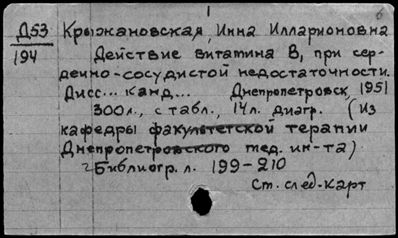 1
Д53 Крыжановская, Инна Илларионовна
194 Действие витамина В₁ при сер-
дечно-сосудистой недостаточности.
Дисс... канд... Днепропетровск, 1951
300л., с табл., 14л. диагр. (Из
кафедры факультетской терапии
Днепропетровского мед. ин-та)
Библиогр. л. 199-210
Ст. след. карт